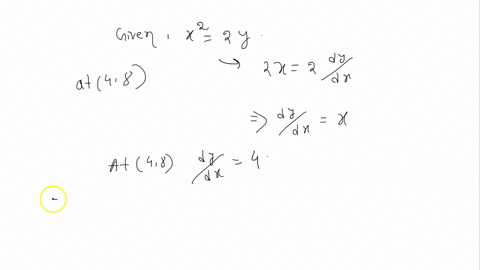 Given, x² = 2y.
at (4,8) → 2x = 2 dy/dx
⇒ dy/dx = x
At (4,8) dy/dx = 4.